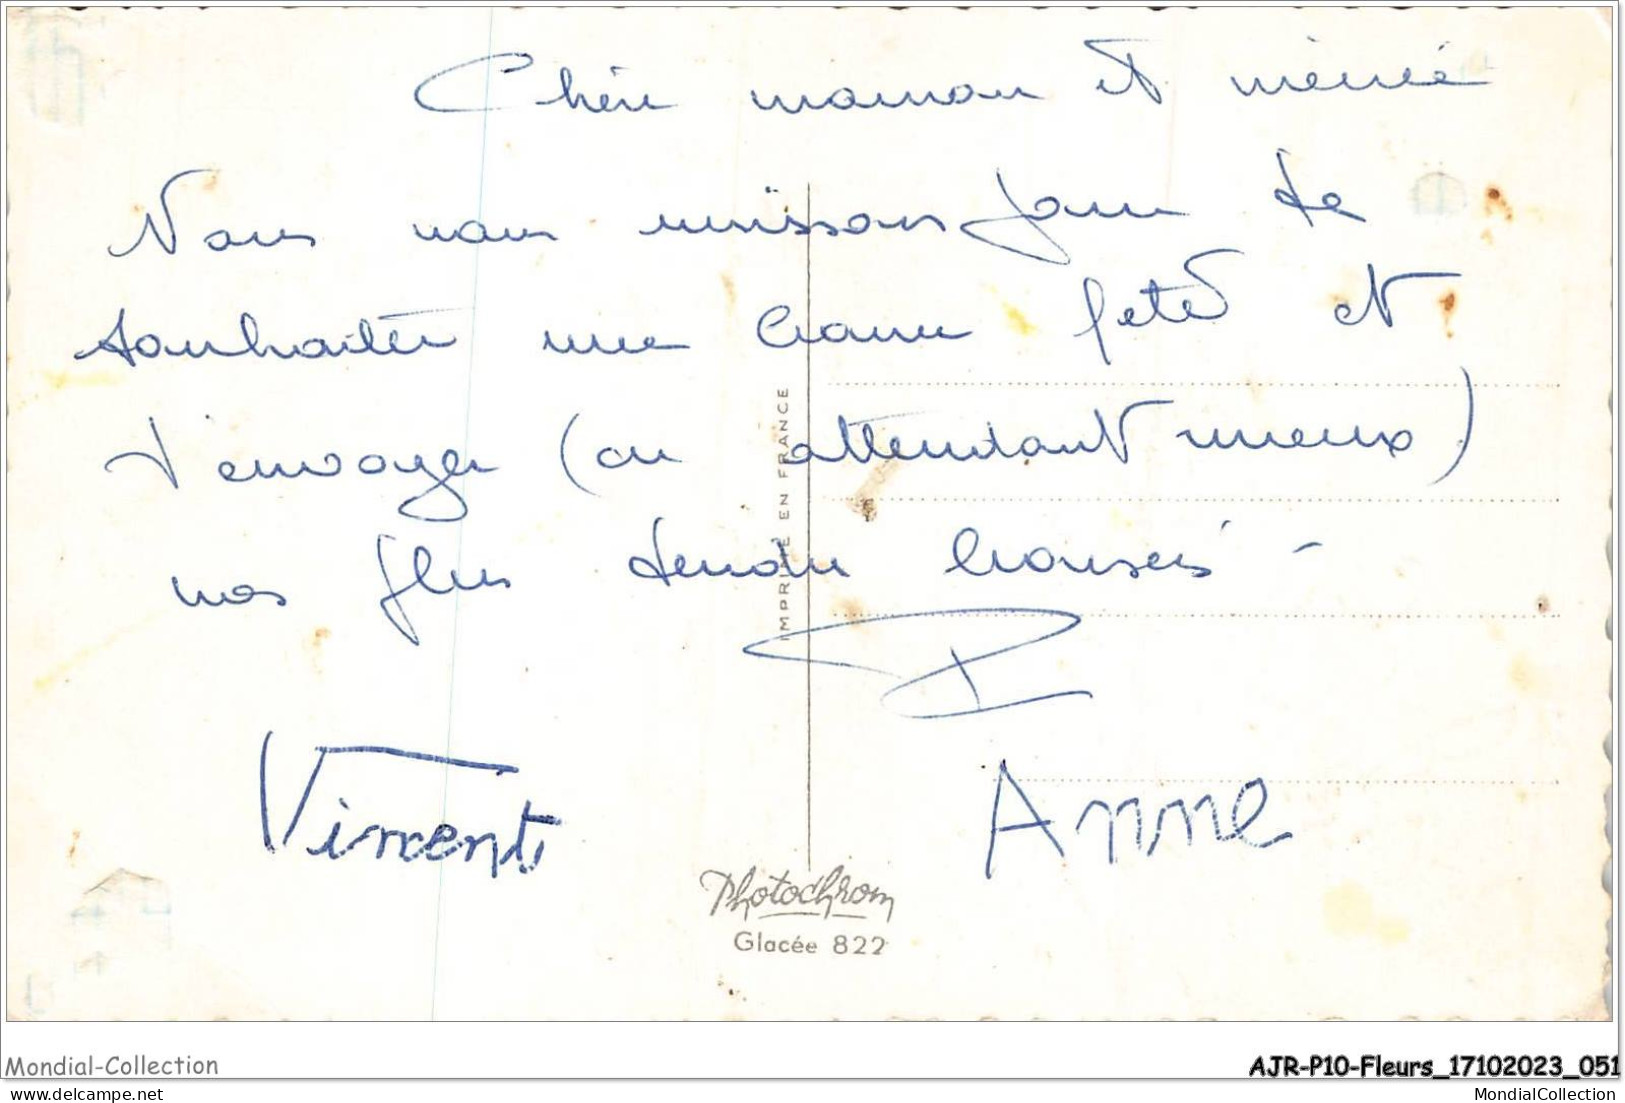 Chère maman et mémé
Nous nous unissons pour te
souhaiter une bonne fête et
t'envoyer (en attendant mieux)
nos plus tendres baisers -
Vincent
Anne
IMPRIMÉ EN FRANCE
Photochrom
Glacée 822
Mondial-Collection
AJR-P10-Fleurs_17102023_051
delcampe.net
MondialCollection